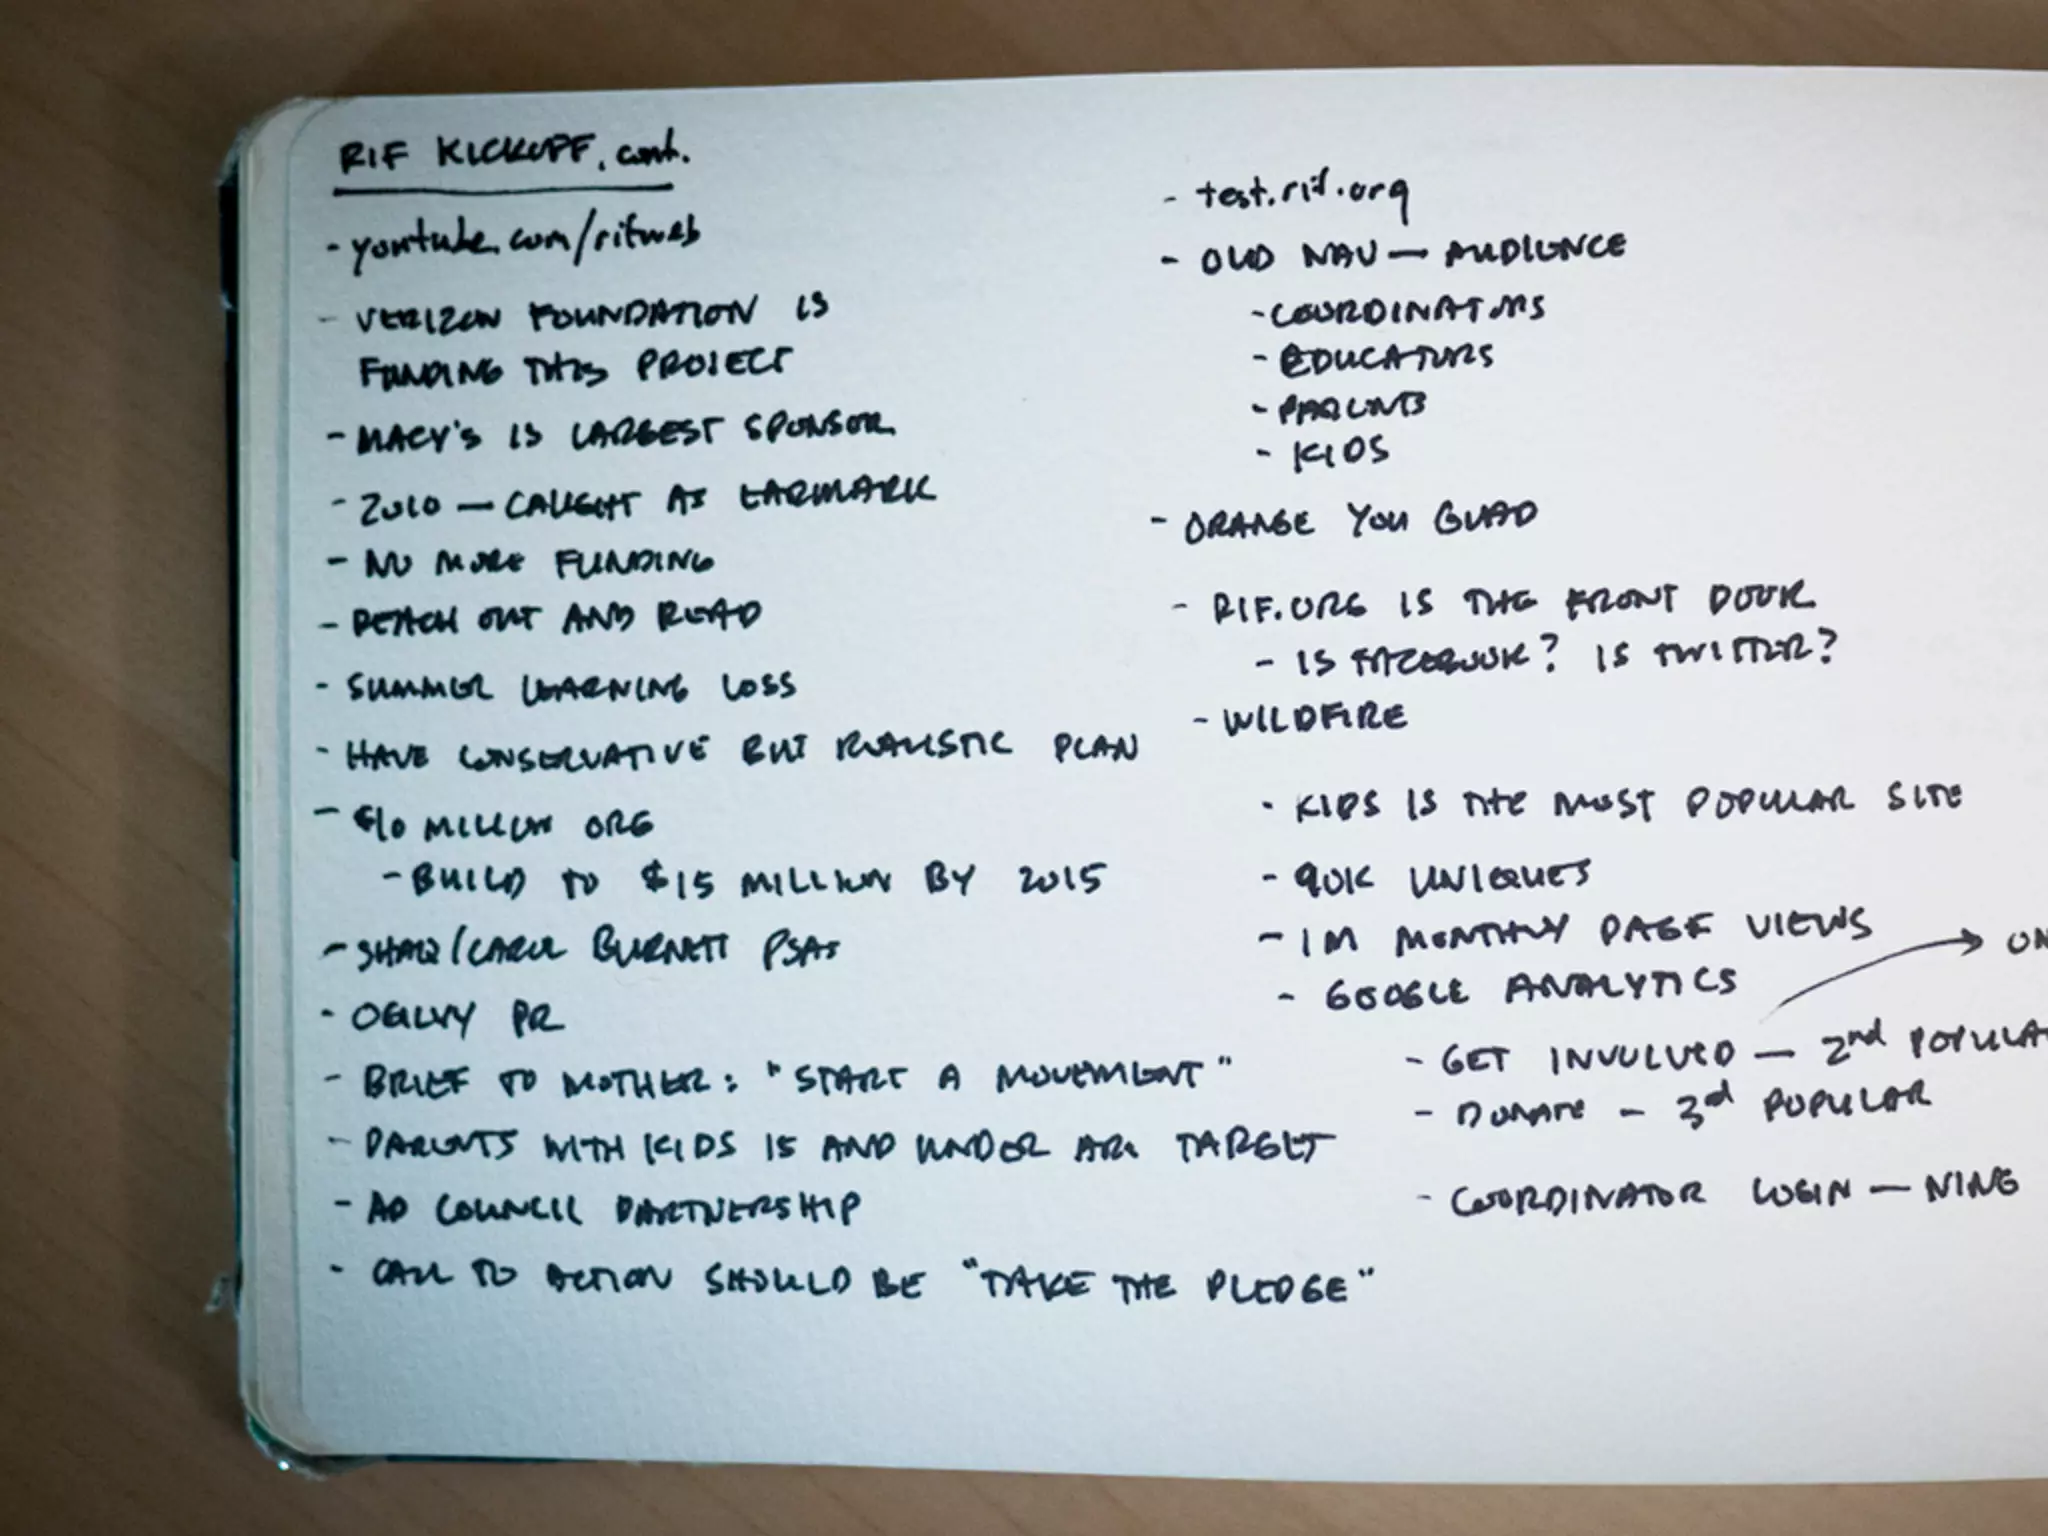 RIF KICKOFF, cont.
- youtube.com/rifweb
- VERIZON FOUNDATION IS
FUNDING THIS PROJECT
- MACY'S IS LARGEST SPONSOR
- 2010 — CAUGHT AS EARMARK
- NO MORE FUNDING
- REACH OUT AND READ
- SUMMER LEARNING LOSS
- HAVE CONSERVATIVE BUT REALISTIC PLAN
- $10 MILLION ORG
- BUILD TO $15 MILLION BY 2015
- SHAQ/CAROL BURNETT PSAs
- OGILVY PR
- BRIEF TO MOTHER: "START A MOVEMENT"
- PARENTS WITH KIDS 15 AND UNDER ARE TARGET
- AD COUNCIL PARTNERSHIP
- CALL TO ACTION SHOULD BE "TAKE THE PLEDGE"
- test.rif.org
- OLD NAV — AUDIENCE
- COORDINATORS
- EDUCATORS
- PARENTS
- KIDS
- ORANGE YOU GLAD
- RIF.ORG IS THE FRONT DOOR
- IS FACEBOOK? IS TWITTER?
- WILDFIRE
- KIDS IS THE MOST POPULAR SITE
- 90K UNIQUES
- 1M MONTHLY PAGE VIEWS
- GOOGLE ANALYTICS
- GET INVOLVED — 2nd
- DONATE — 3rd POPULAR
- COORDINATOR LOGIN — NING